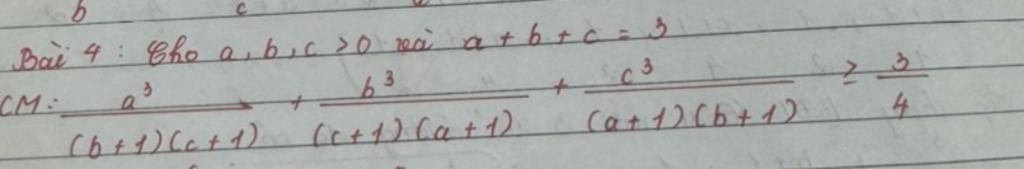 b c
Bài 4 : Cho a, b, c > 0 và a + b + c = 3
CM: a³/((b+1)(c+1)) + b³/((c+1)(a+1)) + c³/((a+1)(b+1)) ≥ 3/4